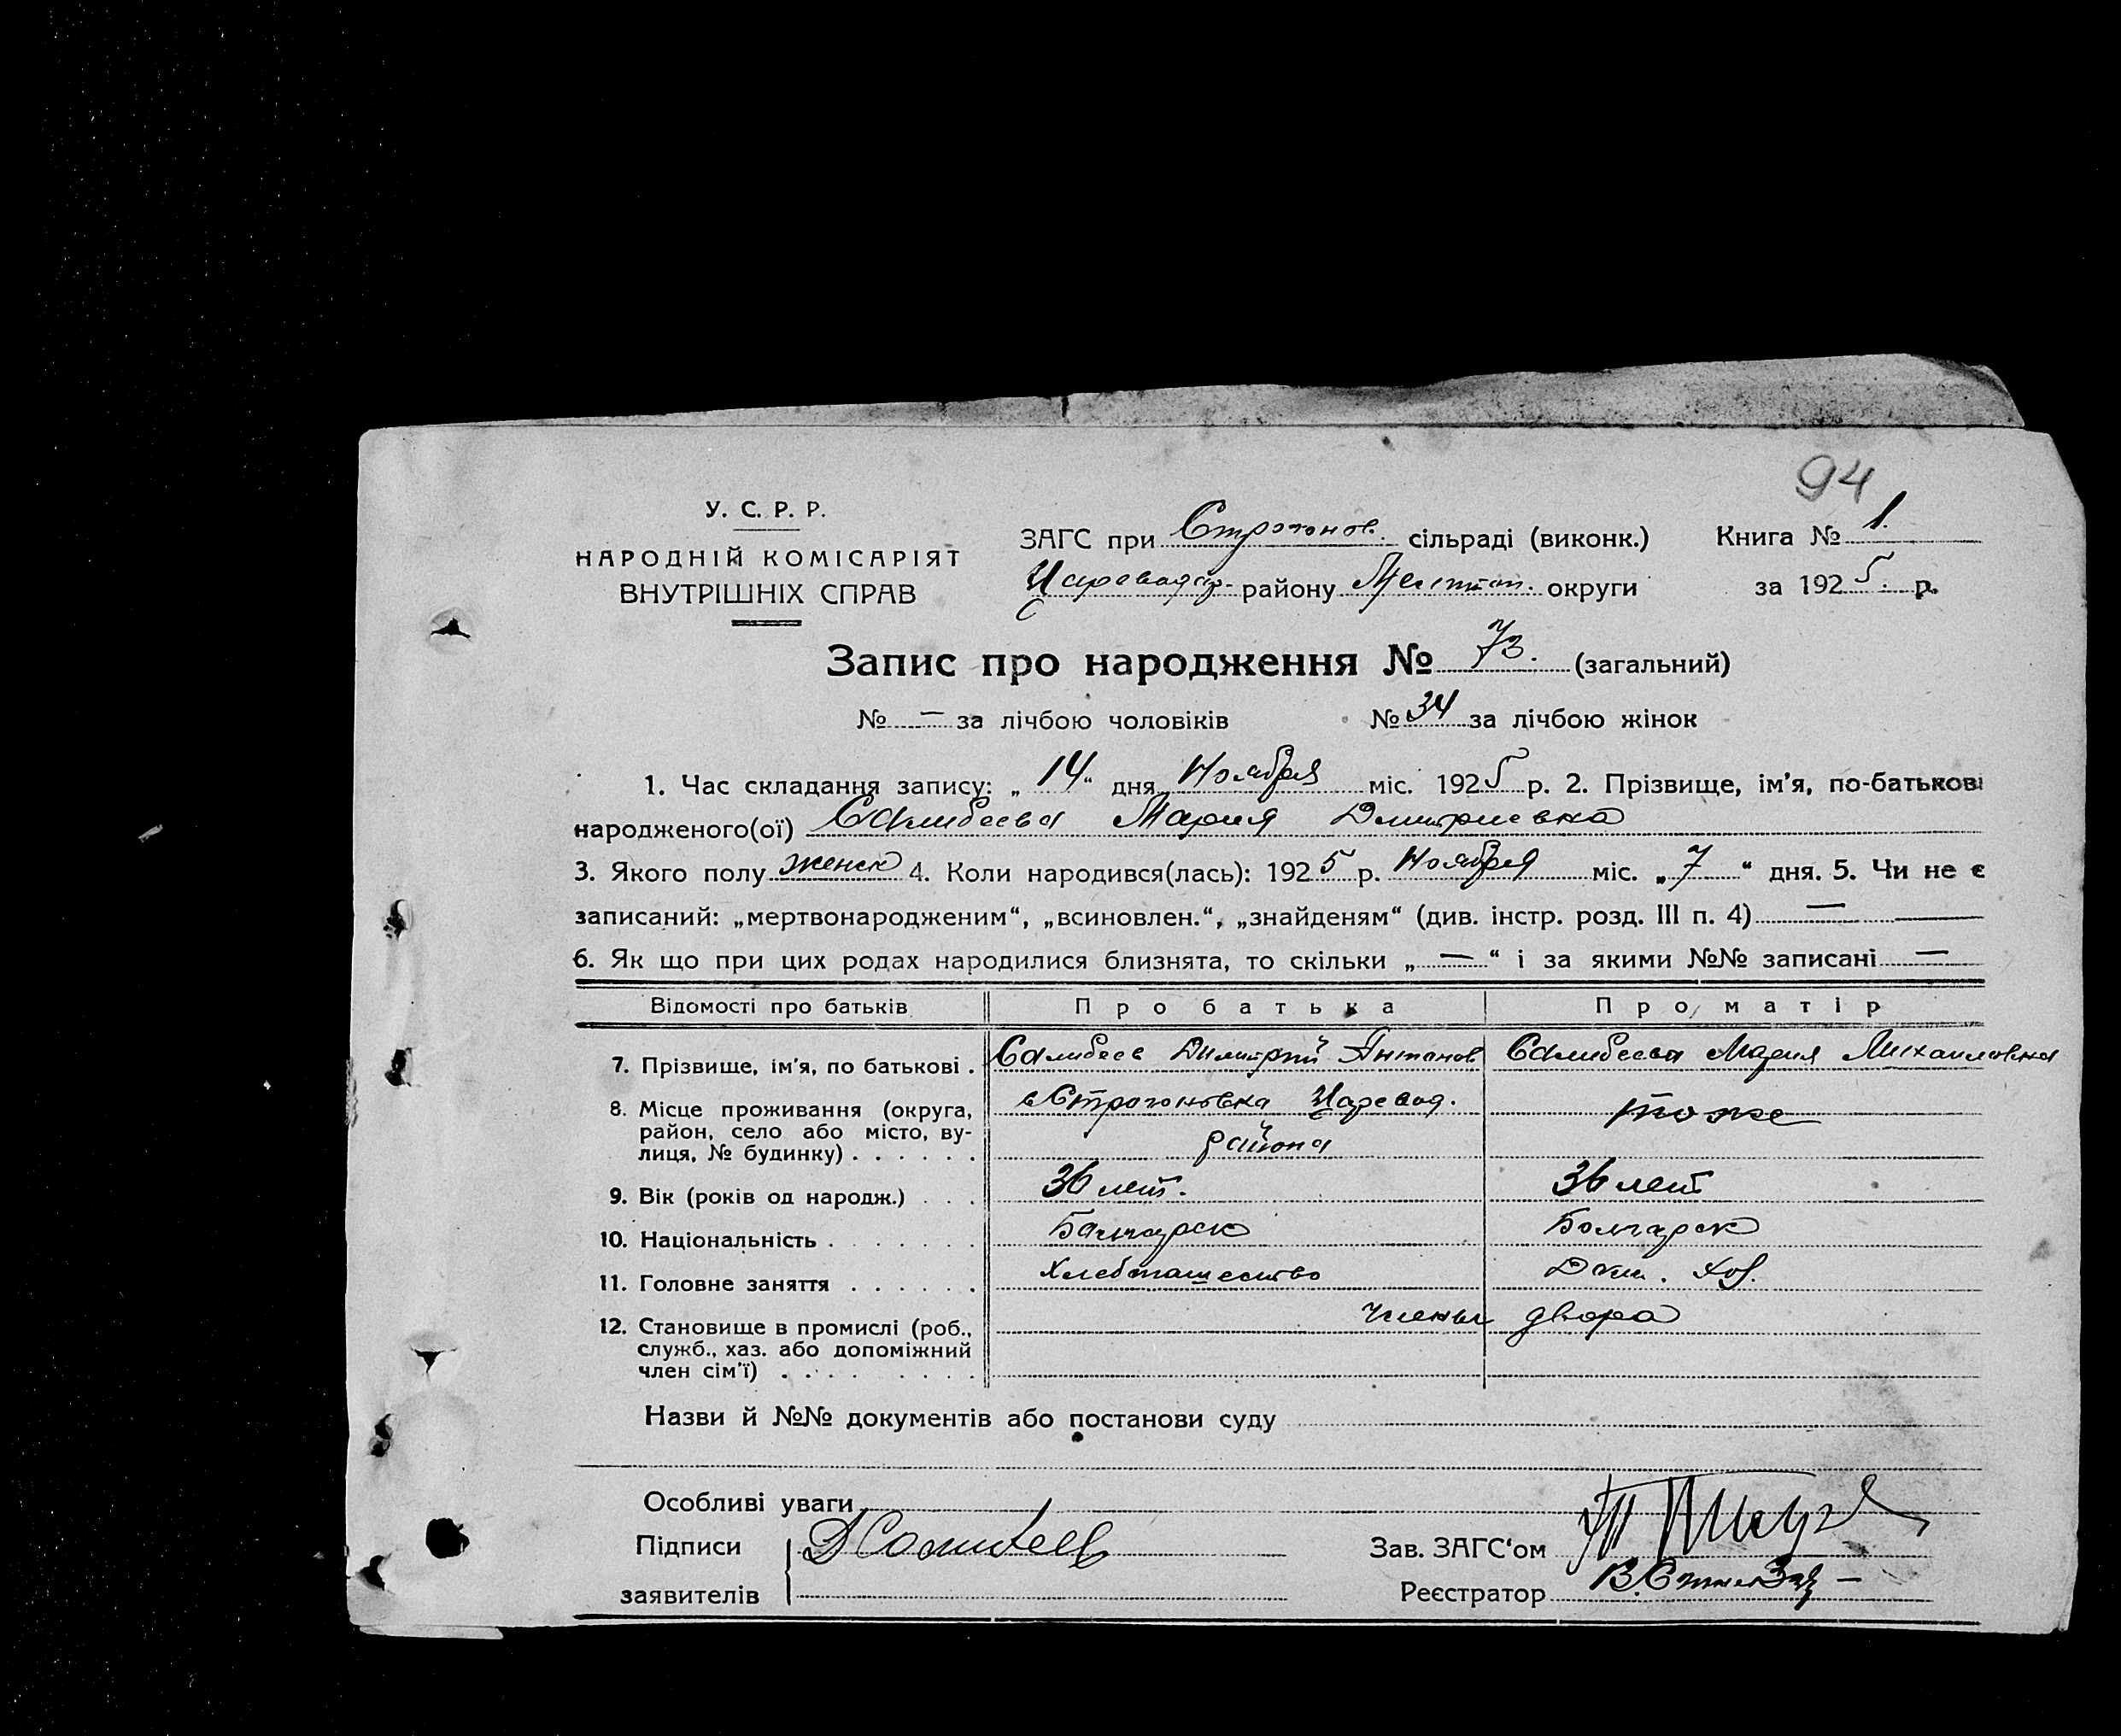 94
У. С. Р. Р.
НАРОДНІЙ КОМІСАРІЯТ
ВНУТРІШНІХ СПРАВ
ЗАГС при Строгонов. сільраді (виконк.) Книга № 1.
Царевода р- району Мелитоп. округи за 1925. р.
Запис про народження № 73. (загальний)
№ — за лічбою чоловіків № 34 за лічбою жінок
1. Час складання запису: „14“ дня Ноября міс. 1925 р. 2. Прізвище, ім'я, по-батькові
народженого(ої) Салибеева Мария Дмитриевна
3. Якого полу женск 4. Коли народився(лась): 1925 р. Ноября міс. „7“ дня. 5. Чи не є
записаний: „мертвонародженим“, „всиновлен.“, „знайденям“ (див. інстр. розд. III п. 4) —
6. Як що при цих родах народилися близнята, то скільки „—“ і за якими №№ записані —
Відомості про батьків Про батька Про матір
7. Прізвище, ім'я, по батькові . Салибеев Димитрий Антонов Салибеева Мария Михайловна
8. Місце проживання (округа, район, село або місто, вулиця, № будинку) . . . . . . с Строгоновка Царевод. района тоже
9. Вік (років од народж.) . . . 36 лет. 36 лет
10. Національність . . . . . . . Болгарск Болгарск
11. Головне заняття . . . . . . Хлебопашество Дом. Хоз.
12. Становище в промислі (роб., служб., хаз. або допоміжний член сім'ї) . . . . . . . . члены двора
Назви й №№ документів або постанови суду
Особливі уваги
Підписи заявителів Д Салибеев
Зав. ЗАГС'ом
Реєстратор В.